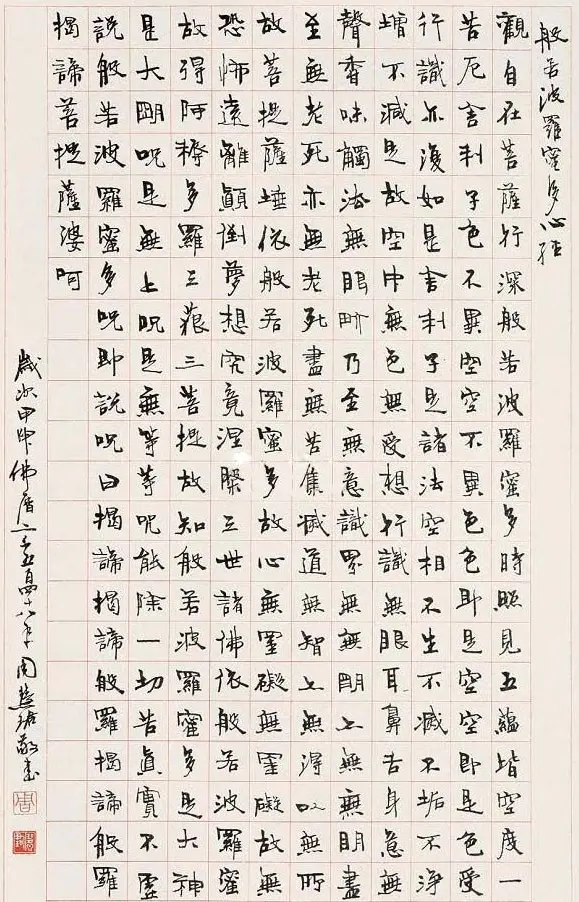 般若波羅蜜多心經
觀自在菩薩行深般若波羅蜜多時照見五蘊皆空度一
苦厄舍利子色不異空空不異色色即是空空即是色受
行識亦復如是舍利子是諸法空相不生不滅不垢不淨
增不減是故空中無色無受想行識無眼耳鼻舌身意無
聲香味觸法無眼界乃至無意識界無無明亦無無明盡
至無老死亦無老死盡無苦集滅道無智亦無得以無所
故菩提薩埵依般若波羅蜜多故心無罣礙無罣礙故無
恐怖遠離顛倒夢想究竟涅槃三世諸佛依般若波羅蜜
故得阿耨多羅三藐三菩提故知般若波羅蜜多是大神
是大明呪是無上呪是無等等呪能除一切苦真實不虛
說般若波羅蜜多呪即說呪曰揭諦揭諦般羅揭諦般羅
揭諦菩提薩婆呵
歲次甲申佛曆二千五百四十八年周慧珺敬書